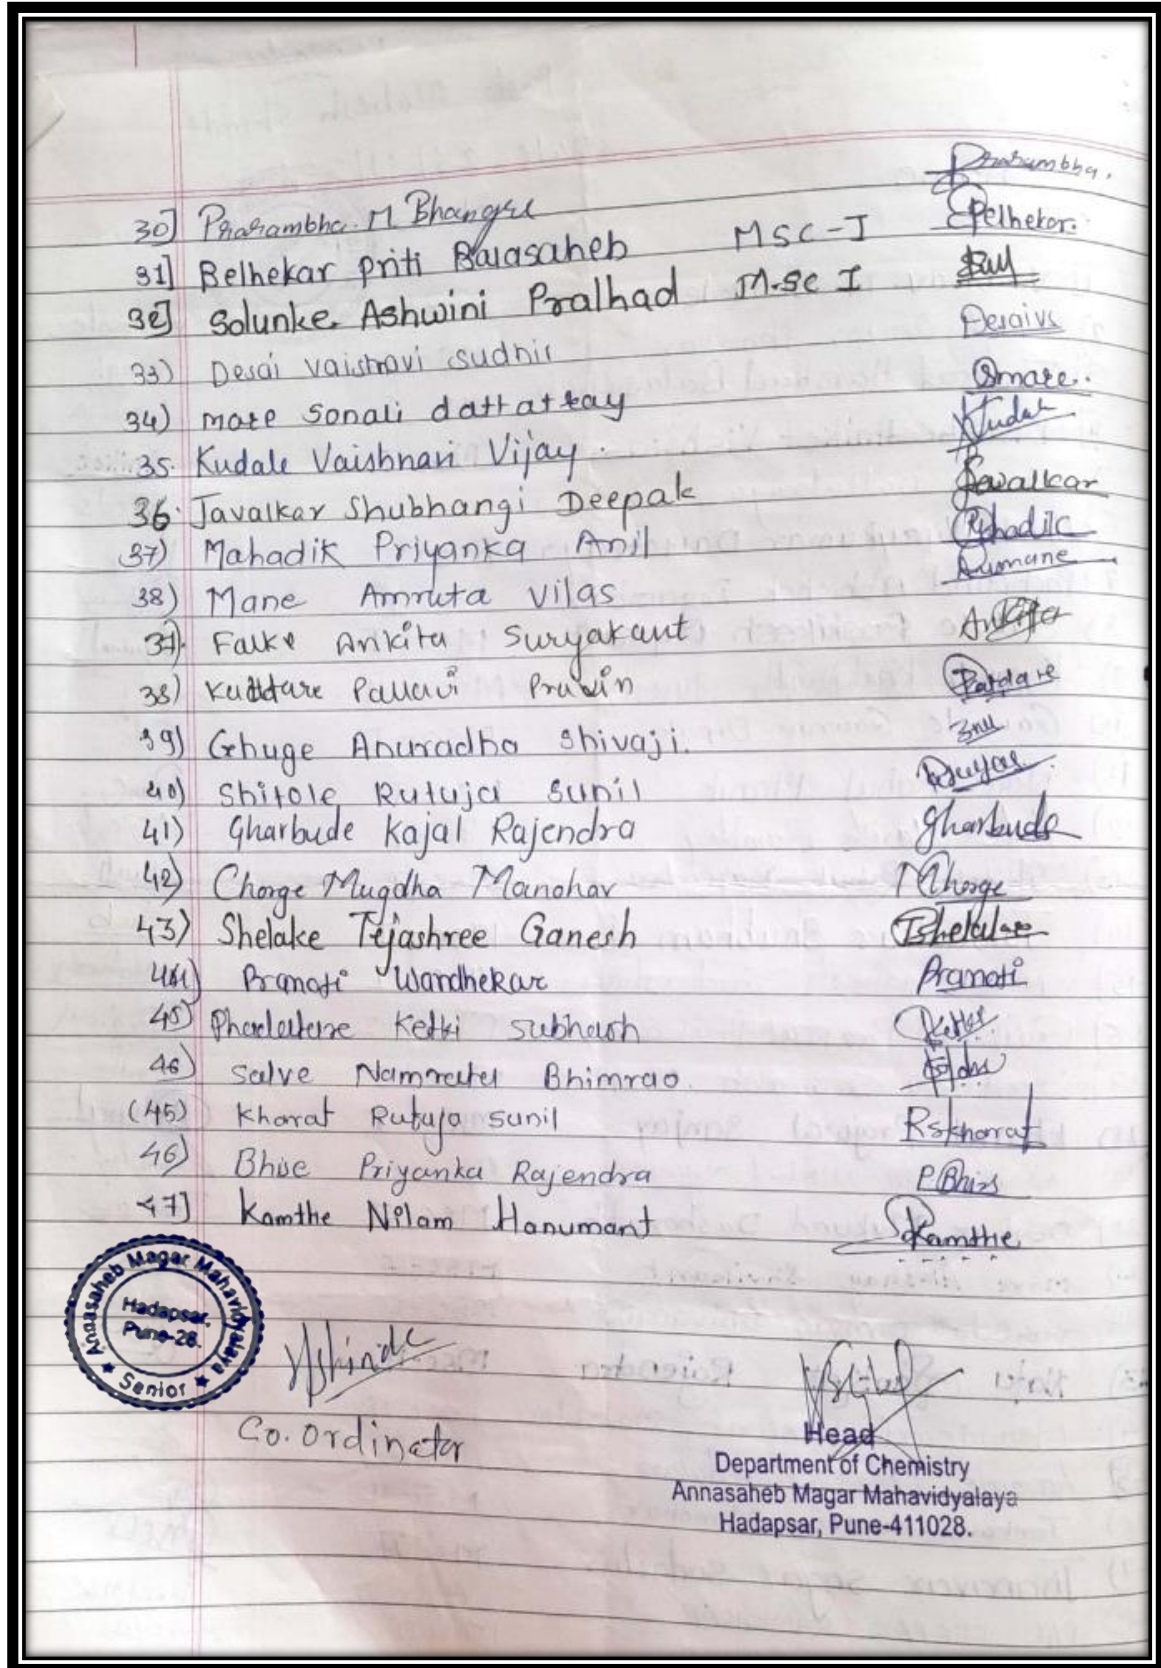 Prarambha.
30] Prarambha. M Bhangre
31] Belhekar Priti Balasaheb MSC-I Pelhekar.
32] Solunke. Ashwini Pralhad M.Sc I
33) Desai Vaishnavi Sudhir Desaivs
34) more Sonali dattatray Smore.
35. Kudale Vaishnavi Vijay. Kudale
36. Javalkar Shubhangi Deepak Javalkar
(37) Mahadik Priyanka Anil Mahadik
38) Mane Amruta Vilas Avmane
37). Falke Ankita Suryakant Ankita
38) Pallavi Pravin
39) Ghuge Anuradha Shivaji.
40) Shitole Rutuja Sunil
41) Gharbude Kajal Rajendra Gharbude
42) Chorge Mugdha Manohar MChorge
43) Shelake Tejashree Ganesh Tshelake
44) Pranoti Wandhekar Pranoti
45) Phadatare Ketki Subhash Ketki
46) Salve Namrata Bhimrao
(45) Kharat Rutuja Sunil Rskharat
46) Bhise Priyanka Rajendra P.Bhise
47] Kamthe Nilam Hanumant Kamthe
Annasaheb Magar Mahavidyalaya
Hadapsar,
Pune-28.
★ Senior ★
Co. Ordinator
Head
Department of Chemistry
Annasaheb Magar Mahavidyalaya
Hadapsar, Pune-411028.